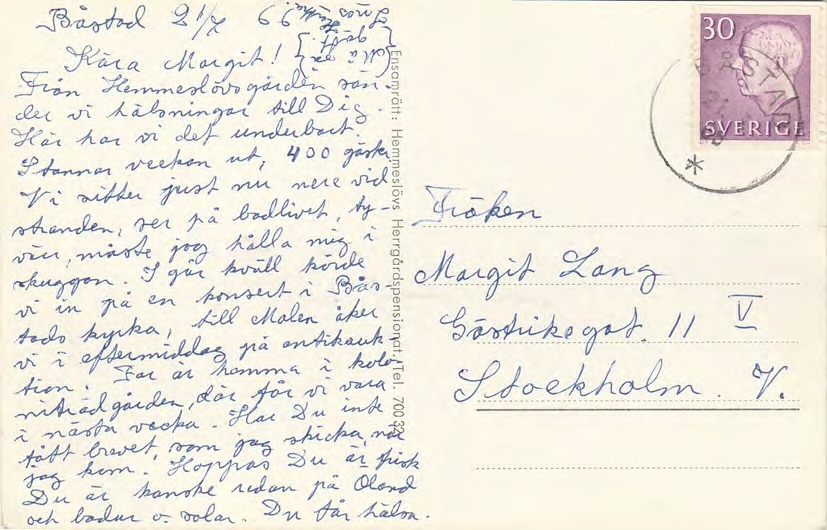 Båstad 21/7 66
Kära Margit!
Från Hemmeslövsgården sän-
der vi hälsningar till Dig.
Här har vi det underbart.
Stannar veckan ut, 400 gäster
Vi sitter just nu nere vid
stranden, ser på badlivet, ty-
värr, måste jag hålla mig i
skuggan. I går kväll körde
vi in på en konsert i Bås-
tads kyrka, till Malen åker
vi i eftermiddag på antikauk-
tion. Far är hemma i kolo-
niträdgården, där får vi vara
i nästa vecka. Har Du inte
fått brevet, som jag skicka, när
jag kom. Hoppas Du är frisk
Du är kanske redan på Öland
och badar o. solar. Du får hälsa.
Ensamrätt: Hemmeslövs Herrgårdspensionat. Tel. 700 32
30
SVERIGE
BÅSTAD
Fröken
Margit Lang
Gästrikegat. 11 V
Stockholm. V.